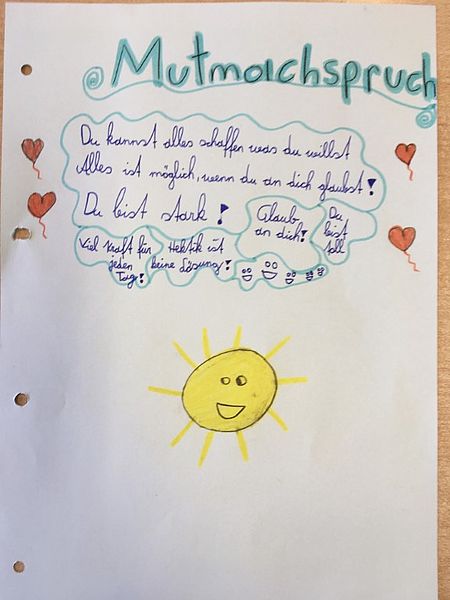 Mutmachspruch
Du kannst alles schaffen was du willst
Alles ist möglich, wenn du an dich glaubst!
Du bist stark!
Glaub
an dich!
Du
bist
toll
Viel Kraft für
jeden
Tag!
Hektik ist
keine Lösung!